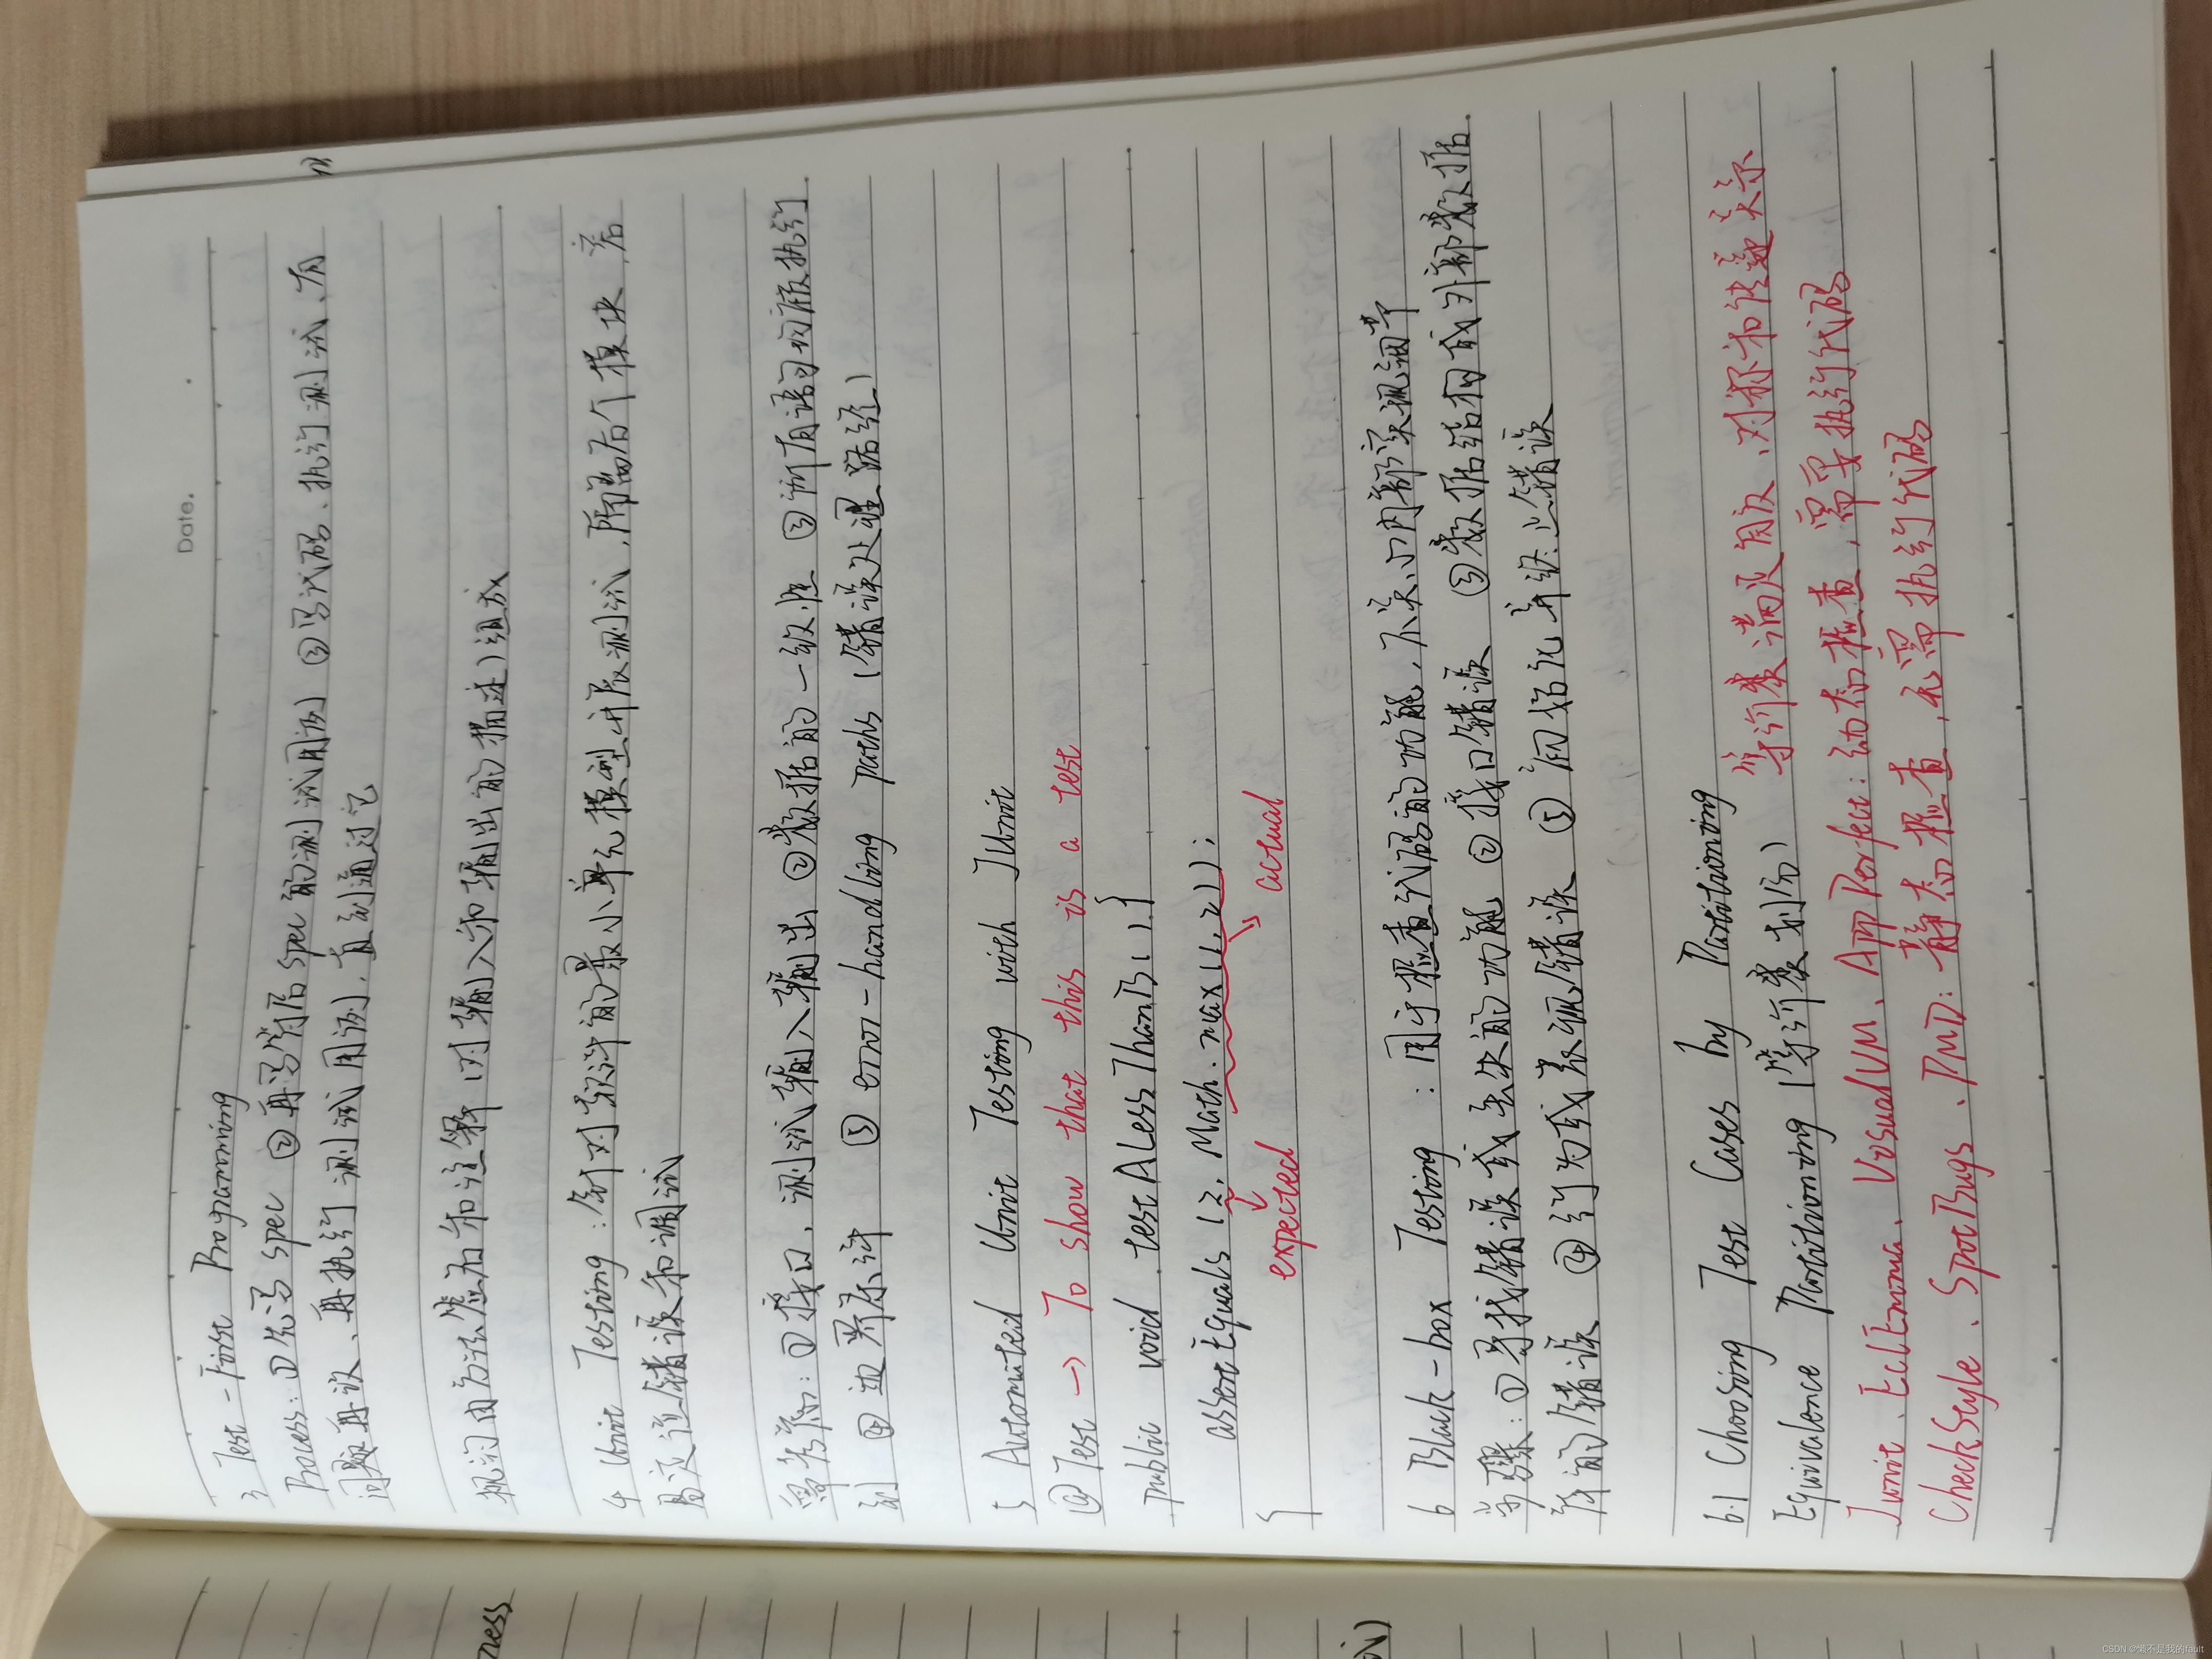 Date.
3 Test-First Programming
Process: ①先写 spec ②再写符合 spec 的测试用例 ③写代码、执行测试、有
问题再改、再执行测试用例,直到通过它
规约由方法签名和注释(对输入和输出的描述)组成
4 Unit Testing:针对软件的最小单元模型开展测试,隔离各个模块,容
易定位错误和调试
需考虑:①接口,测试输入输出 ②数据的一致性 ③所有语句均被执行
到 ④边界条件 ⑤error-handling paths (错误处理路径)
5 Automated Unit Testing with JUnit
@Test → To show that this is a test
public void testALessThanB() {
assertEquals (2, Math.max(1,2));
expected actual
}
6 Black-box Testing :用于检查代码的功能,不关心内部实现细节
步骤:①寻找错误或丢失的功能 ②接口错误 ③数据结构或外部数据
库的错误 ④行为或表现错误 ⑤初始化并终止错误
6.1 Choosing Test Cases by Partitioning
Equivalence Partitioning (等价类划分) 等价类满足自反、对称和传递关系
Junit、EclEmma、VisualVM、AppPerfect:动态检查,需要执行代码
CheckStyle、SpotBugs、PMD:静态检查,无需执行代码
ness
CSDN @懒不是我的fault